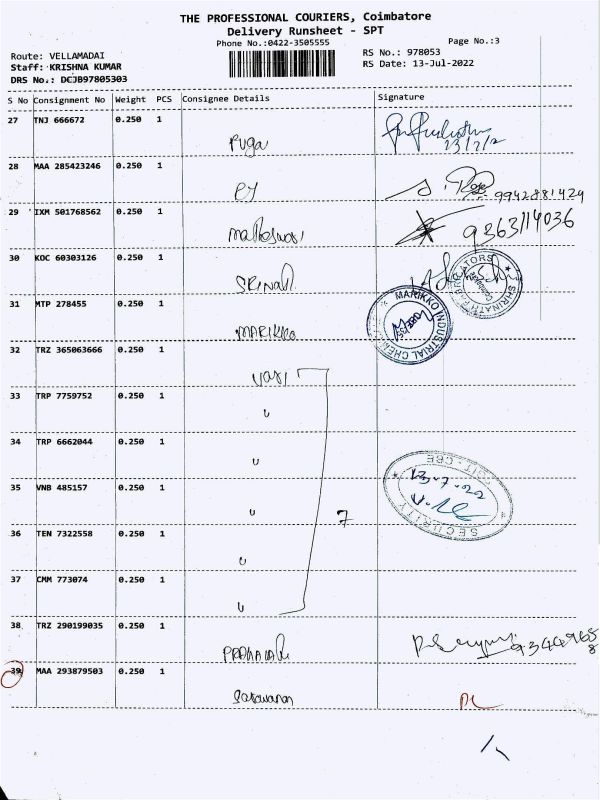 THE PROFESSIONAL COURIERS, Coimbatore
Delivery Runsheet - SPT
Phone No.:0422-3505555
Page No.:3
Route: VELLAMADAI
RS No.: 978053
Staff: KRISHNA KUMAR
RS Date: 13-Jul-2022
DRS No.: DCJB97805303
S No Consignment No Weight PCS Consignee Details Signature
27 TNJ 666672 0.250 1
Puga
28 MAA 285423246 0.250 1
9942881429
29 IXM 501768562 0.250 1
9363114036
30 KOC 60303126 0.250 1
31 MTP 278455 0.250 1
MARIKKO
MARIKKO INDUSTRIAL
32 TRZ 365063666 0.250 1
33 TRP 7759752 0.250 1
34 TRP 6662044 0.250 1
35 VNB 485157 0.250 1
13-7-22
SECURITY
7
36 TEN 7322558 0.250 1
37 CMM 773074 0.250 1
38 TRZ 290199035 0.250 1
39 MAA 293879503 0.250 1
Saravanan